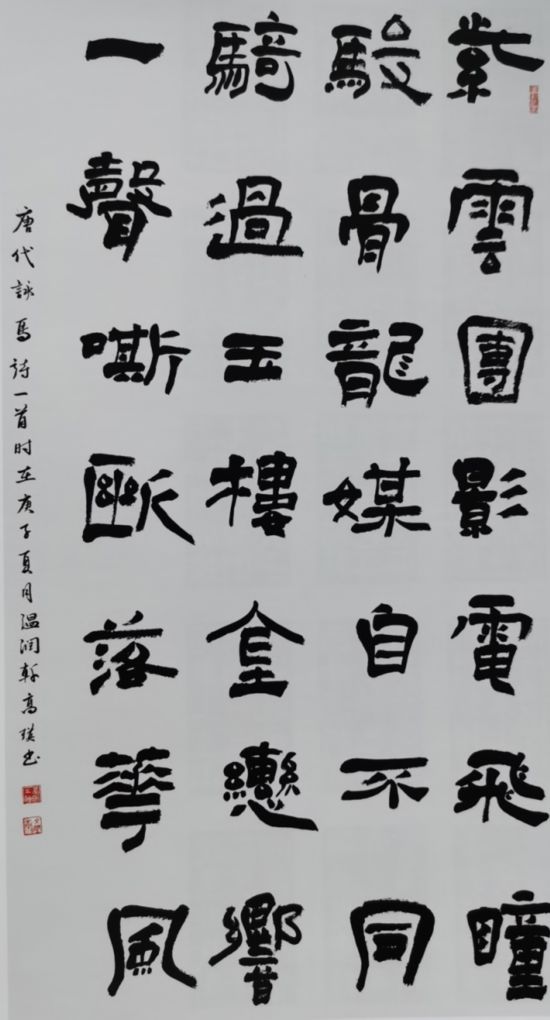 紫雲團影電飛瞳
駿骨龍媒自不同
騎過玉樓金轡響
一聲嘶斷落華風
唐代詠馬詩一首时在庚子夏月温润軒高璞书